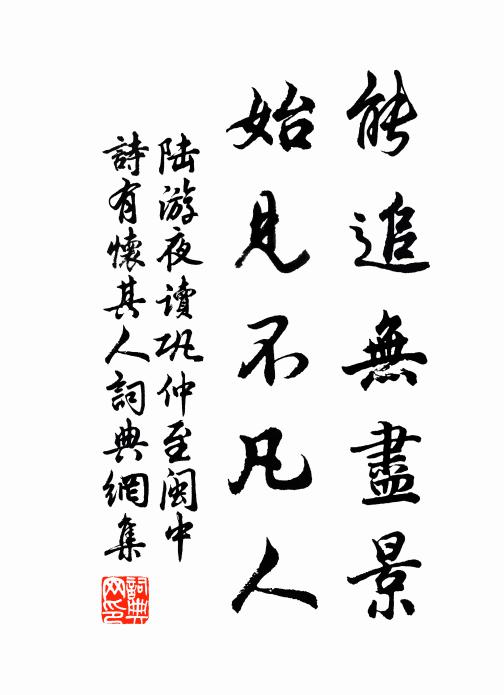 能追無盡景
始見不凡人
陸游夜讀巩仲至閩中
詩有懷其人詞典網集
詞典網印